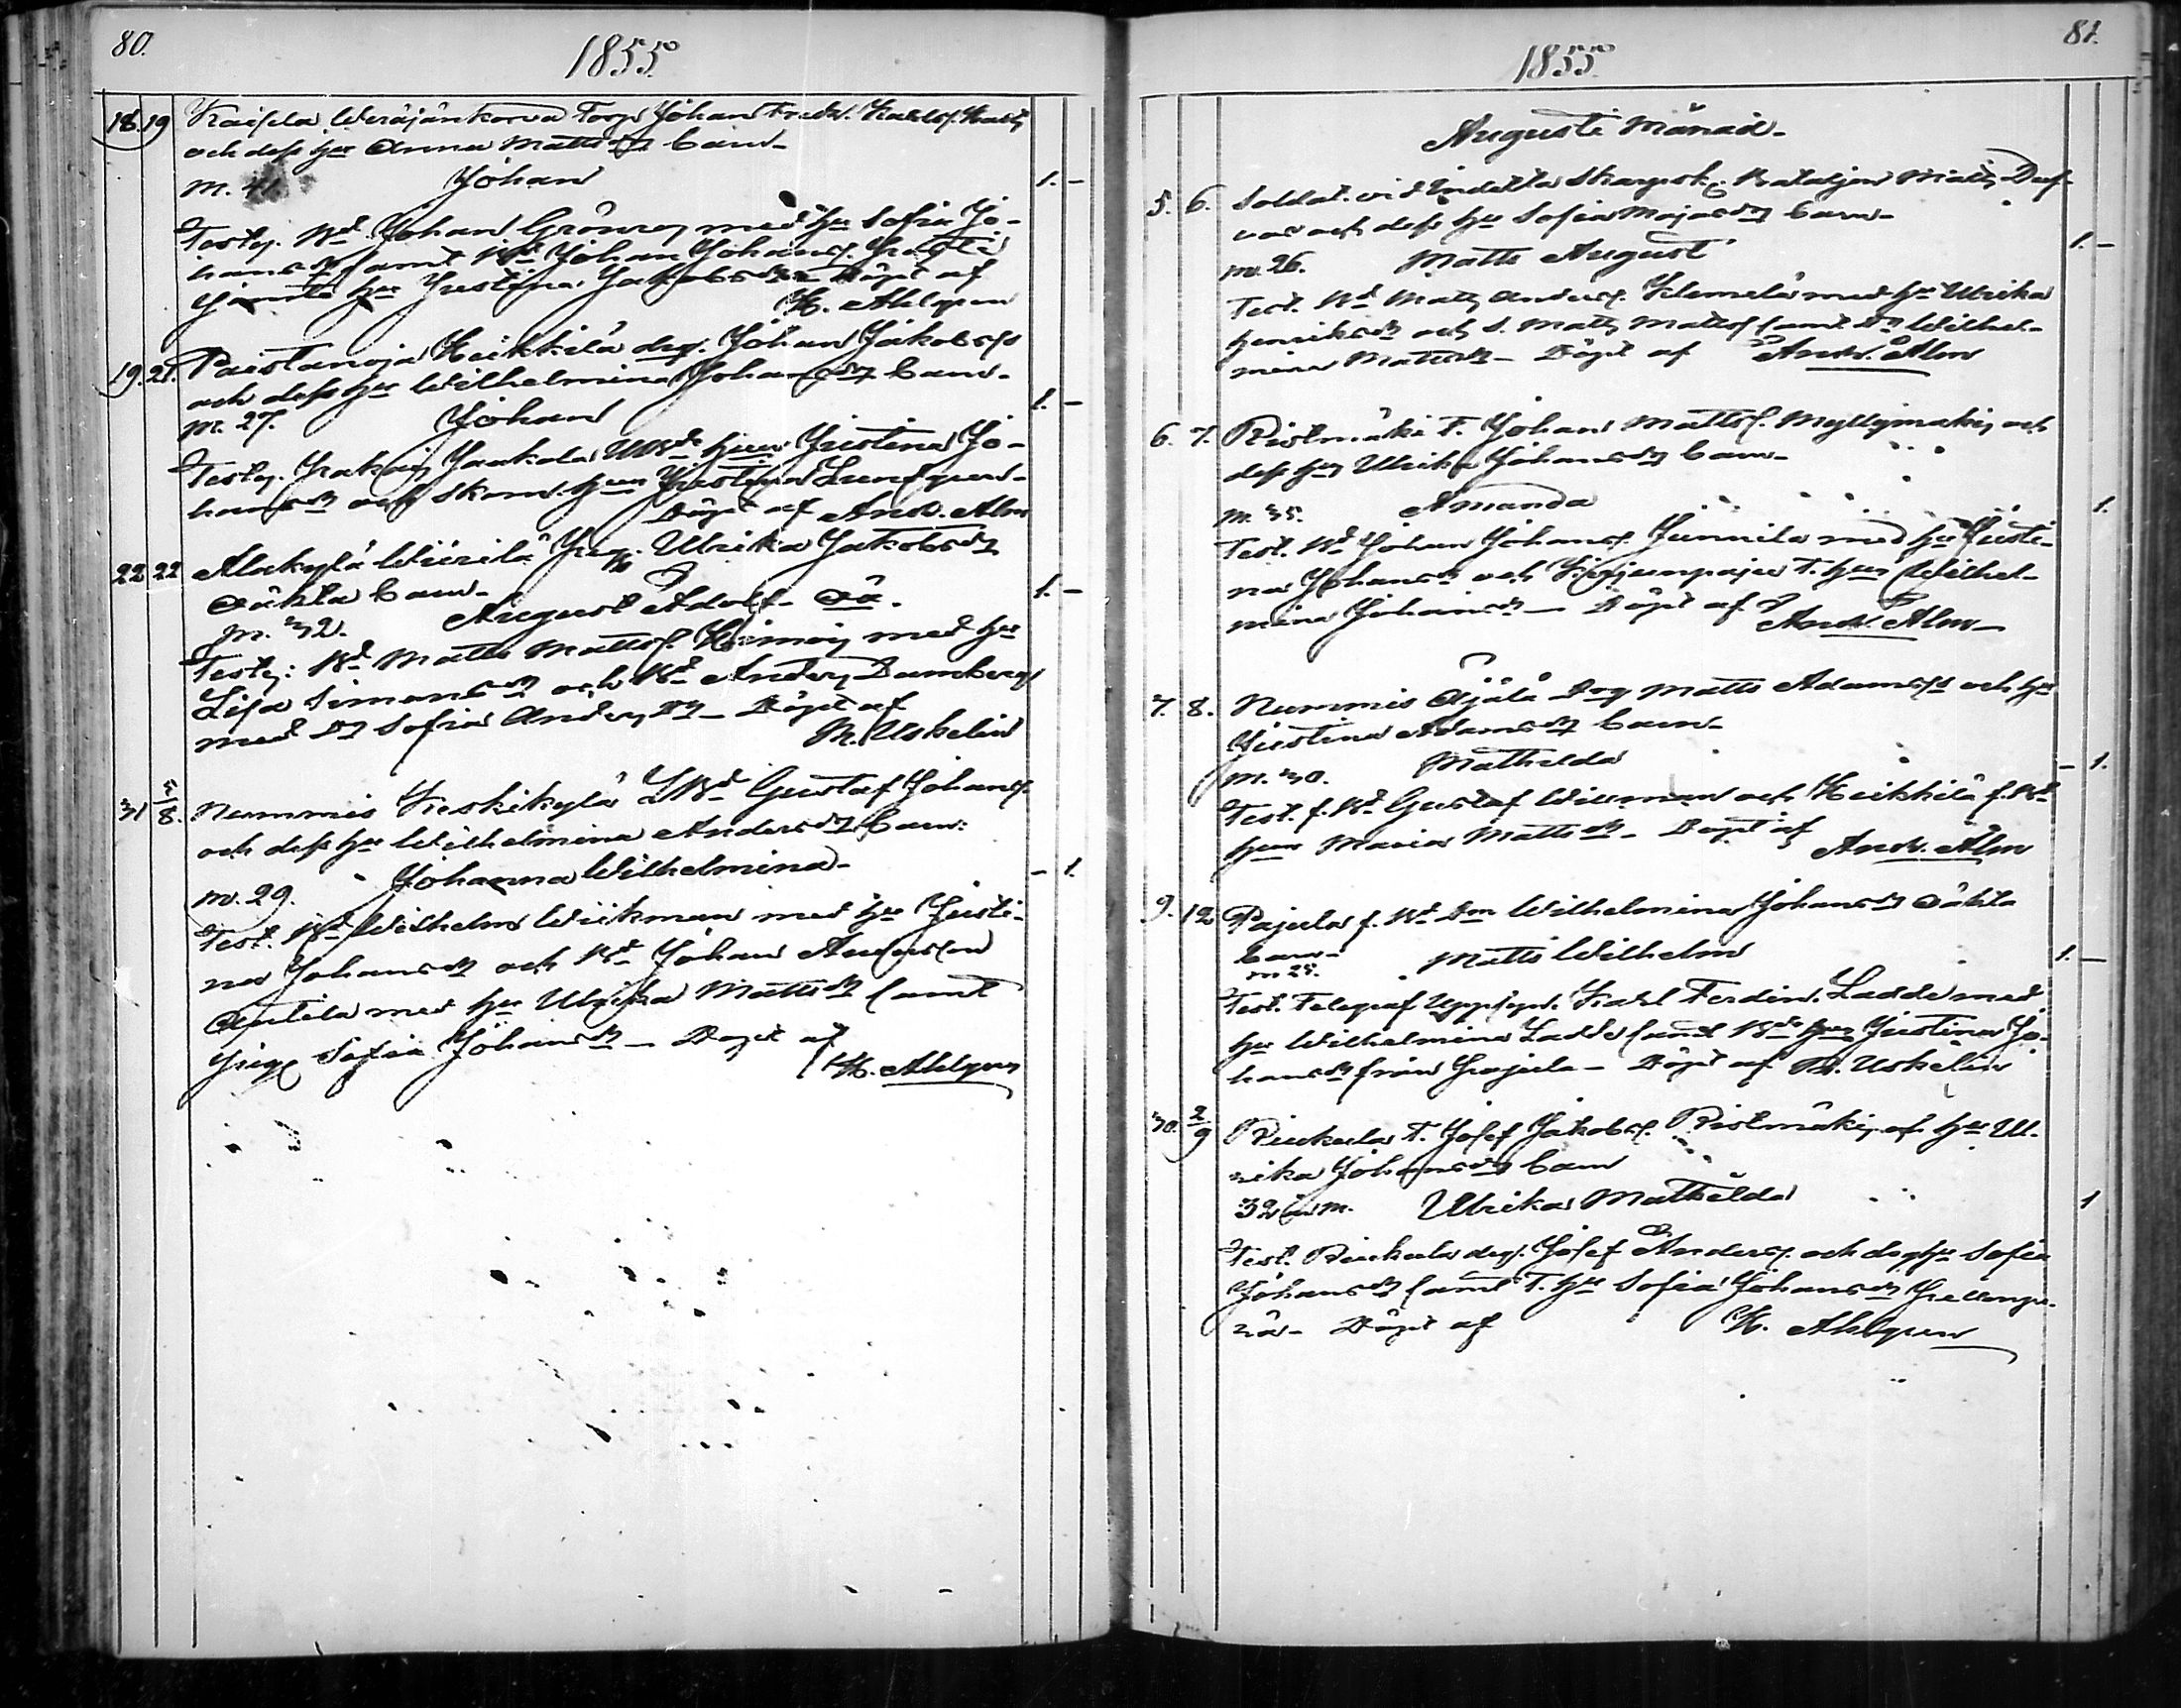 80.
1855
18. 19 Kaisela Weräjänkorva Torp. Johan Fredr. Karlss.
och dess hu Anna Mattsdr barn-
M. 41. Johan 1. -
Testes. Bd Johan Grönroos med hu Sofia Jo-
hansdr samt Bd Johan Johanss.
jämte hu Justina Jakobsdr Döpt af
K. Ahlgren
19. 21. Paistanoja Heikkilä drg. Johan Jakobsss
och dess hu Wilhelmina Johansdr barn-
M. 27. Johan 1. -
Testes. Jaakola Bds hu Justina Jo-
hansdr och Skom. hun Justina Lundqvist-
Döpt af Andr. Alm
22 22 Alakylä Wiirilä Pig. Ulrika Jakobsdr
oäkta barn-
M. 32. August Adolf. Oä. 1. -
Testes: Bd Matts Mattss. Heimo med hu
Lisa Simonsdr och Bd Anders Dumberg
med Dr Sofia Andersdr - Döpt af
M. Uskelin
31 5/8. Nummis Keskikylä LBd Gustaf Johanss.
och dess hu Wilhelmina Andersdr barn:
M. 29. Johanna Wilhelmina - - 1.
Test. Bd Wilhelm Wiikman med hu Justi-
na Johansdr och Bd Johan Andersson
Anttila med hu Ulrika Mattsdr samt
Pig. Sofia Johansdr - Döpt af
K. Ahlgren
81.
1855
Augusti Månad-
5. 6. Soldat. vid Indelta Skarpsk. Bataljon Matts Duf-
va och dess hu Sofia Majasdr barn-
M. 26. Matts August 1. -
Test. Bd Matts Anderss. Klemelä med hu Ulrika
Henriksdr och S. Matts Mattss samt Dr Wilhel-
mina Mattsdr - Döpt af Andr. Alm
6. 7. Ristmäki T. Johan Mattss. Myllymäki och
dess hu Ulrika Johansdr barn-
M. 35. Amanda 1.
Test. Bd Johan Johanss. Junnila med hu Justi-
na Johansdr och T. hun Wilhel-
mina Johansdr - Döpt af Andr. Alm -
7. 8. Nummis Äijälä Drg Matts Adamsss och hu
Justina Adamsdr barn-
M. 30. Mathilda - 1.
Test. f. Bd Gustaf Widman och Heikkilä f. Bd
hun Maria Mattsdr - Döpt af
Andr. Alm
9. 12 Pajula f. Bd Dr Wilhelmina Johansdr oäkta
barn-
M 25. Matts Wilhelm 1. -
Test. Telegraf Uppsyn. Karl Ferdin. Ladde med
hu Wilhelmina Ladde samt Bds hun Justina Jo-
hansdr från Pajula - Döpt af M. Uskelin
30. 2/9 Riukula T. Josef Jakobss. Ristmäki och hu Ul-
rika Johansdr barn
32 år M. Ulrika Mathilda 1
Test. Riukula drg. Josef Anderss. och dess hu Sofia
Johansdr samt T. hu Sofia Johansdr
Döpt af K. Ahlgren